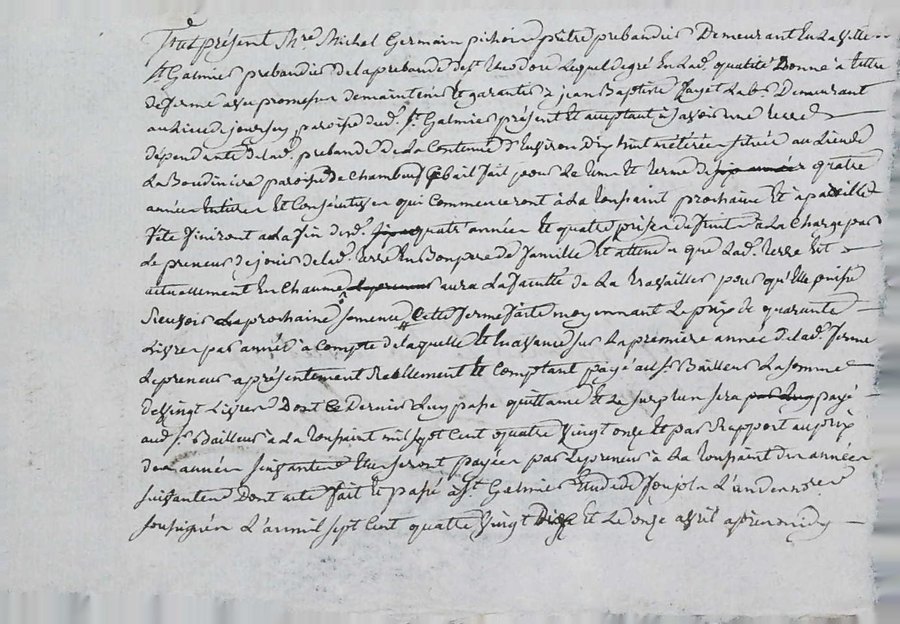 Fut présent Mre. Michel Germain pichon prêtre prebandier Demeurant En La Ville
St. Galmier prebandier de la prebande de St. theodore Lequel degré En Lad. qualité Donne a titre
de ferme avec promesse de maintenir Et garantir a jean Baptiste Lab. Demeurant
au Lieu de paroisse dud. St. Galmier présent Et acceptant a Savoir une terre
dépendante de lad. prebande de La Contenue D'Environ Dix huit meterée Située au Lieu de
La Boudiniere paroisse de Chambeuf Ce Bail fait pour Le tems Et terme de quatre
années Entiere Et Consécutives qui Commenceront a La toussaint prochaine Et a pareille
fete finiront a La fin desd. quatre année Et quatre prises de fruit a La Charge par
Le preneur de jouir de lad. terre En Bon pere de famille Et attendu que Lad. terre Est
actuellement En Chaume aura La faculté de La travailler pour qu'Elle puisse
Recevoir La prochaine Semence Cette ferme faite moyennant Le prix de quarante
Livres par année a Compte de laquelle Et En avance sur La premiere année de lad. ferme
Le preneur a présentement Réellement Et Comptant payé au Sr. Bailleur La somme
de Vingt Livres Dont Ce Dernier Luy passe quittance Et Le surplus sera payé
aud. Sr. Bailleur a La toussaint mil sept Cent quatre Vingt onze Et par Rapport au prix
des année suivantes Elles seront payées par Le preneur a La toussaint des années
suivantes Dont acte fait Et passé a St. Galmier Etude de L'un des nores.
soussignés L'an mil sept Cent quatre Vingt Dix Et Le onze avril apres midy